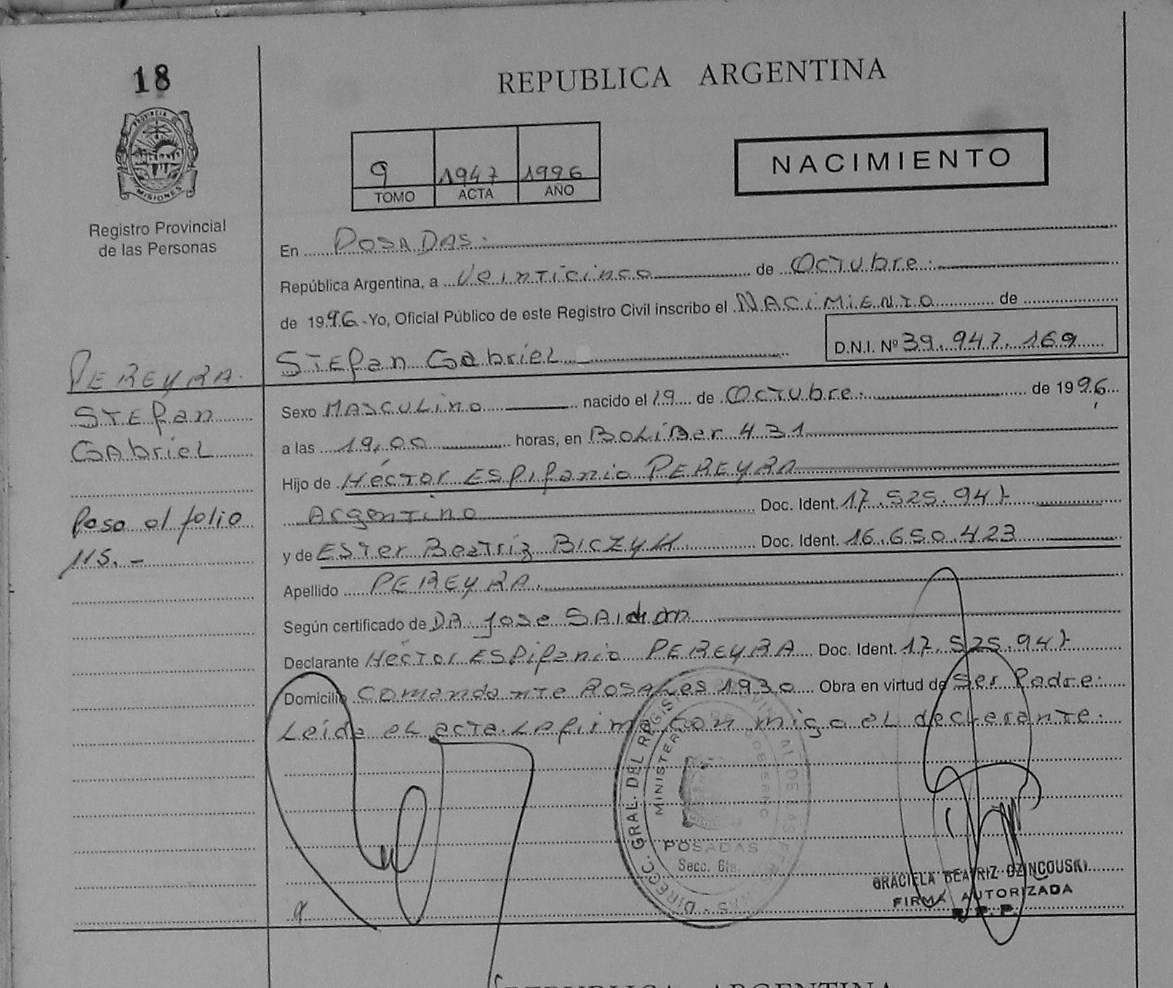 18
REPUBLICA ARGENTINA
PROVINCIA DE
MISIONES
Registro Provincial
de las Personas
9 1947 1996
TOMO ACTA AÑO
NACIMIENTO
En POSADAS.
República Argentina, a Veinticinco de Octubre.
de 1996.-Yo, Oficial Público de este Registro Civil inscribo el NACIMIENTO de
STEfan GabrieL D.N.I. Nº 39.947.169
PEREYRA.
STEfan
GAbrieL
Paso al folio
115.-
Sexo MASCULINO nacido el 19 de Octubre. de 1996
a las 19,00 horas, en BOLiBar 431
Hijo de Héctor ESPifanio PEREYRA
Argentino Doc. Ident. 17.525.947
y de ESTer Beatriz BICZYK Doc. Ident. 16.650.423
Apellido PEREYRA.
Según certificado de DR Jose
Declarante Héctor ESPifanio PEREYRA Doc. Ident. 17.525.947
Domicilio Comandante Rosales 1930 Obra en virtud de Ser Padre.
Leída el acta La firma con migo el declarante.
DIRECC. GRAL. DEL REGISTRO PROVINCIAL DE LAS PERSONAS
MINISTERIO DE GOBIERNO
POSADAS
Secc. 6ta.
GRACIELA BEATRIZ OZINCOUSKI
FIRMA AUTORIZADA
R.P.P.
REPUBLICA ARGENTINA